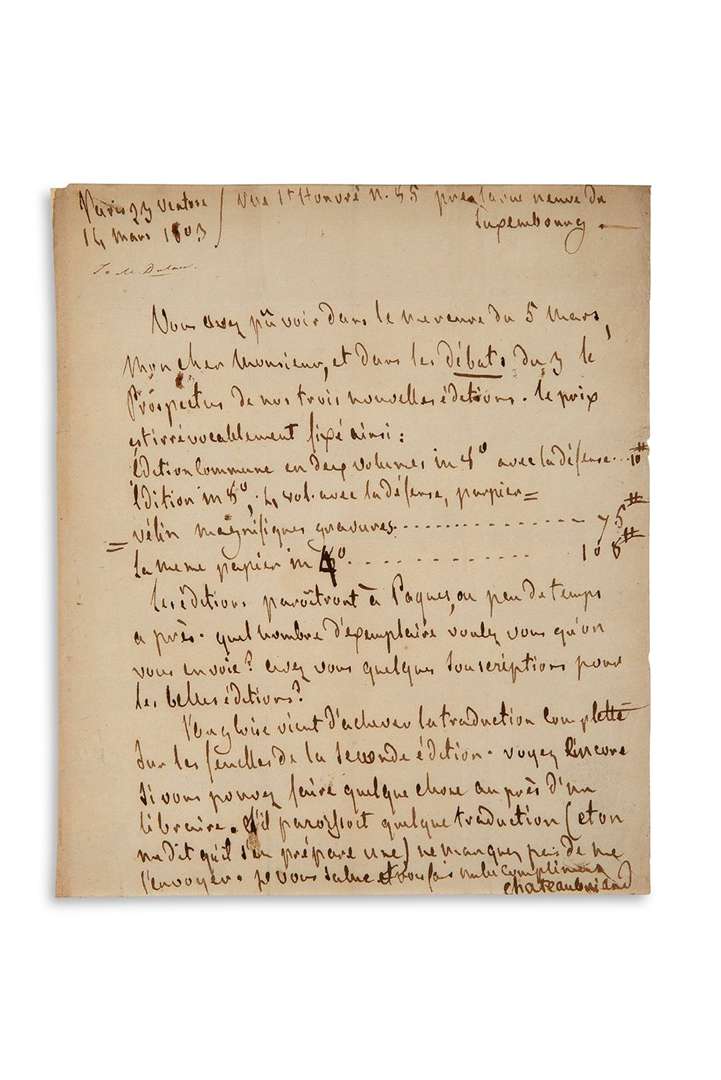 Paris 23 ventose / rue St Honoré n. 85 près la rue neuve du
14 mars 1803 Luxembourg.
To M. Dulau.
Vous avez pû voir dans le mercure du 5 mars,
mon cher Monsieur, et dans les débats du 3 le
Prospectus de nos trois nouvelles éditions. le prix
est irrévocablement fixé ainsi :
Édition Commune en deux volumes in 8º avec la défense... 10#
Édition in 8º, 4 vol. avec la défense, papier =
= vélin magnifiques gravures ................ 75#
la meme papier in 4º ................ 108#
les éditions paroîtront à Paques, ou peu de temps
après. quel nombre d'exemplaire voulez vous qu'on
vous envoie? avez vous quelques souscriptions pour
les belles éditions?
l'anglaise vient d'achever la traduction complette
sur les feuilles de la seconde édition. voyez encore
si vous pouvez faire quelque chose auprès d'un
libraire. S'il paroissoit quelque traduction (et on
m'a dit qu'il s'en prépare une) ne manquez pas de me
l'envoyer. je vous salue et vous fais mille complimens
chateaubriand